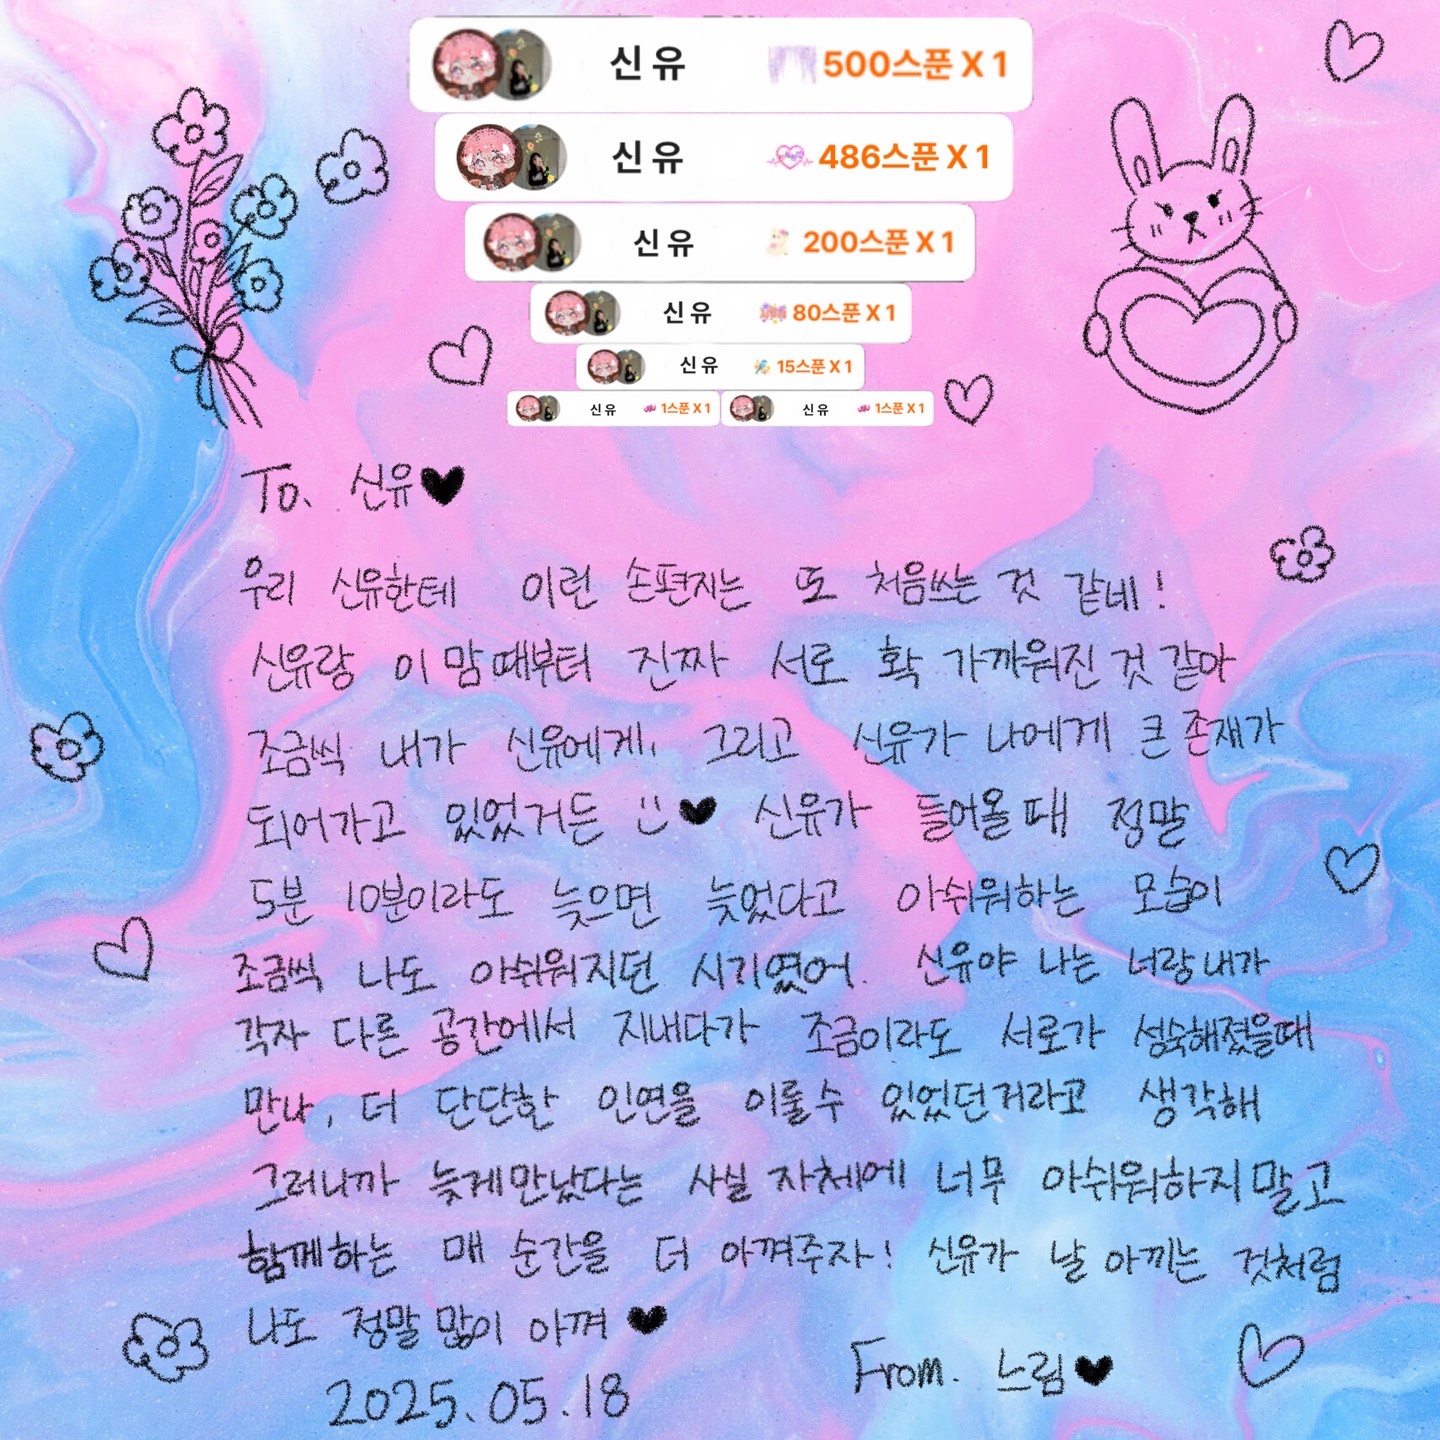 신유 500스푼 X 1
신유 486스푼 X 1
신유 200스푼 X 1
신유 80스푼 X 1
신유 15스푼 X 1
신유 1스푼 X 1 신유 1스푼 X 1
To. 신유♥
우리 신유한테 이런 손편지는 또 처음쓰는 것 같네!
신유랑 이맘때부터 진짜 서로 확 가까워진 것 같아
조금씩 내가 신유에게, 그리고 신유가 나에게 큰 존재가
되어가고 있었거든 :) ♥ 신유가 들어올때 정말
5분 10분이라도 늦으면 늦었다고 아쉬워하는 모습이
조금씩 나도 아쉬워지던 시기였어. 신유야 나는 너랑 내가
각자 다른 공간에서 지내다가 조금이라도 서로가 성숙해졌을때
만나, 더 단단한 인연을 이룰수 있었던거라고 생각해
그러니까 늦게만났다는 사실 자체에 너무 아쉬워하지말고
함께하는 매 순간을 더 아껴주자! 신유가 날 아끼는 것처럼
나도 정말 많이 아껴 ♥
2025.05.18
From. 느림♥